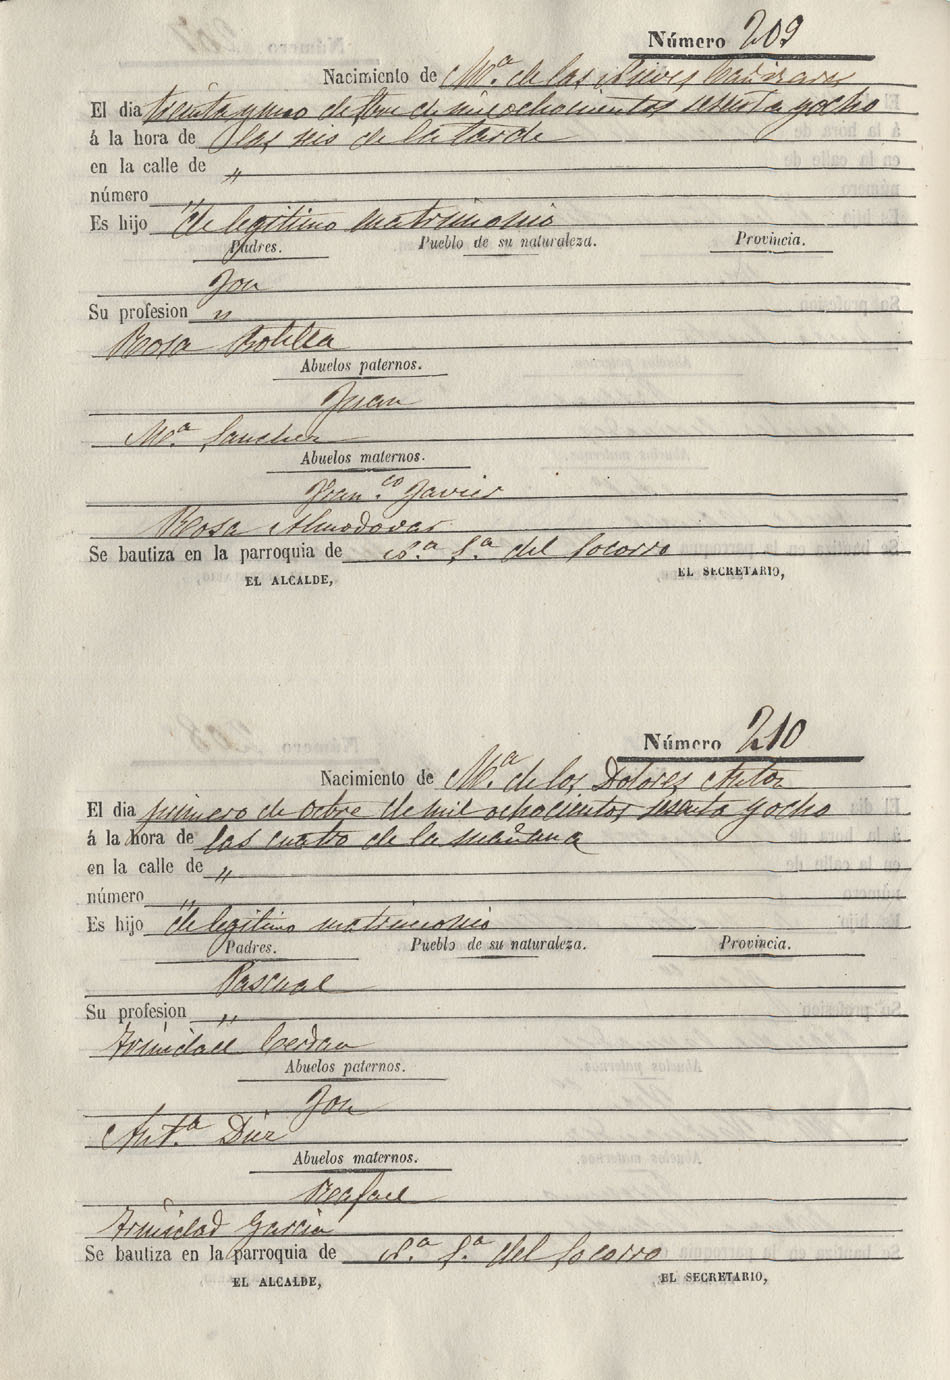 Número 209
Nacimiento de Mª de las Nieves Cañizares
El dia treinta y uno de de mil ochocientos sesenta y ocho
á la hora de las seis de la tarde
en la calle de "
número "
Es hijo de legitimo matrimonio
Padres. Pueblo de su naturaleza. Provincia.
José
Su profesion "
Rosa Botella
Abuelos paternos.
Juan
Mª Sanchez
Abuelos maternos.
Franco Javier
Rosa Almodovar
Se bautiza en la parroquia de Nª Sª del Socorro
EL ALCALDE, EL SECRETARIO,
Número 210
Nacimiento de Mª de los Dolores Anton
El dia primero de octbre de mil ochocientos sesenta y ocho
á la hora de las cuatro de la mañana
en la calle de "
número "
Es hijo de legitimo matrimonio
Padres. Pueblo de su naturaleza. Provincia.
Pascual
Su profesion "
Trinidad Cerdan
Abuelos paternos.
José
Antª Diez
Abuelos maternos.
Rafael
Trinidad Garcia
Se bautiza en la parroquia de Nª Sª del Socorro
EL ALCALDE, EL SECRETARIO,